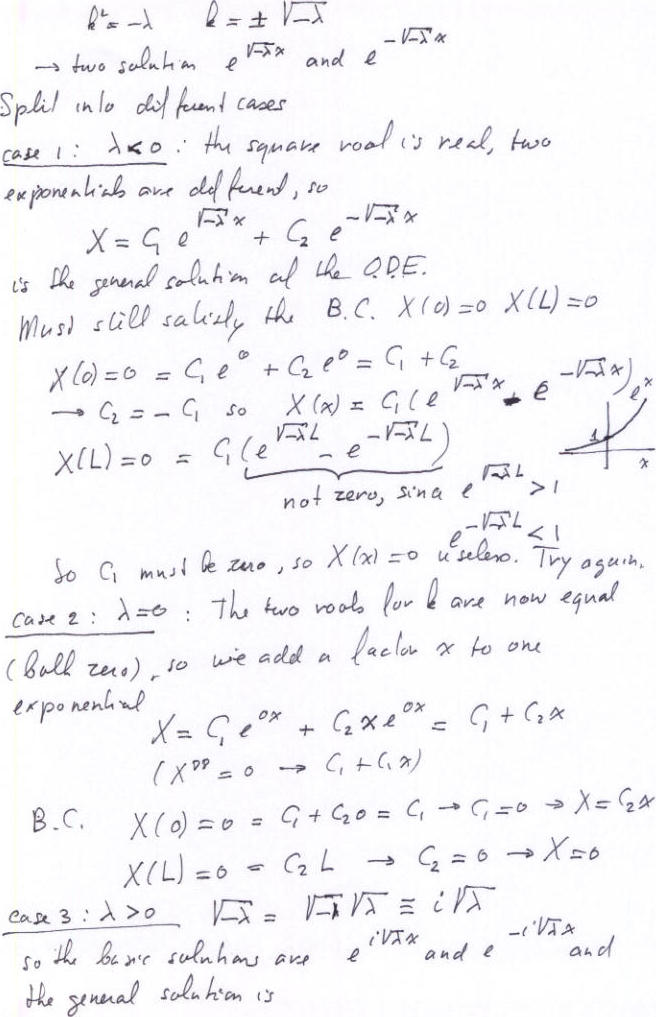 k² = -λ    k = ± √-λ
→ two solution e^{√-λ x} and e^{-√-λ x}
Split into different cases
case 1: λ<0 : the square root is real, two
exponentials are different, so
X = C₁ e^{√-λ x} + C₂ e^{-√-λ x}
is the general solution of the O.D.E.
Must still satisfy the B.C. X(0)=0 X(L)=0
X(0)=0 = C₁ e⁰ + C₂ e⁰ = C₁ + C₂
→ C₂ = - C₁ so X(x) = C₁(e^{√-λ x} - e^{-√-λ x})
e^x
1
x
X(L)=0 = C₁(e^{√-λ L} - e^{-√-λ L})
not zero, since e^{√-λ L} > 1
e^{-√-λ L} < 1
So C₁ must be zero, so X(x)=0 useless. Try again.
case 2 : λ=0 : The two roots for k are now equal
(both zero), so we add a factor x to one
exponential
X = C₁ e^{0x} + C₂ x e^{0x} = C₁ + C₂x
(X'' = 0 → C₁ + C₁x)
B.C. X(0)=0 = C₁ + C₂0 = C₁ → C₁=0 → X=C₂x
X(L)=0 = C₂ L → C₂ = 0 → X=0
case 3 : λ>0 √-λ = √-1 √λ ≡ i√λ
so the basic solutions are e^{i√λ x} and e^{-i√λ x} and
the general solution is